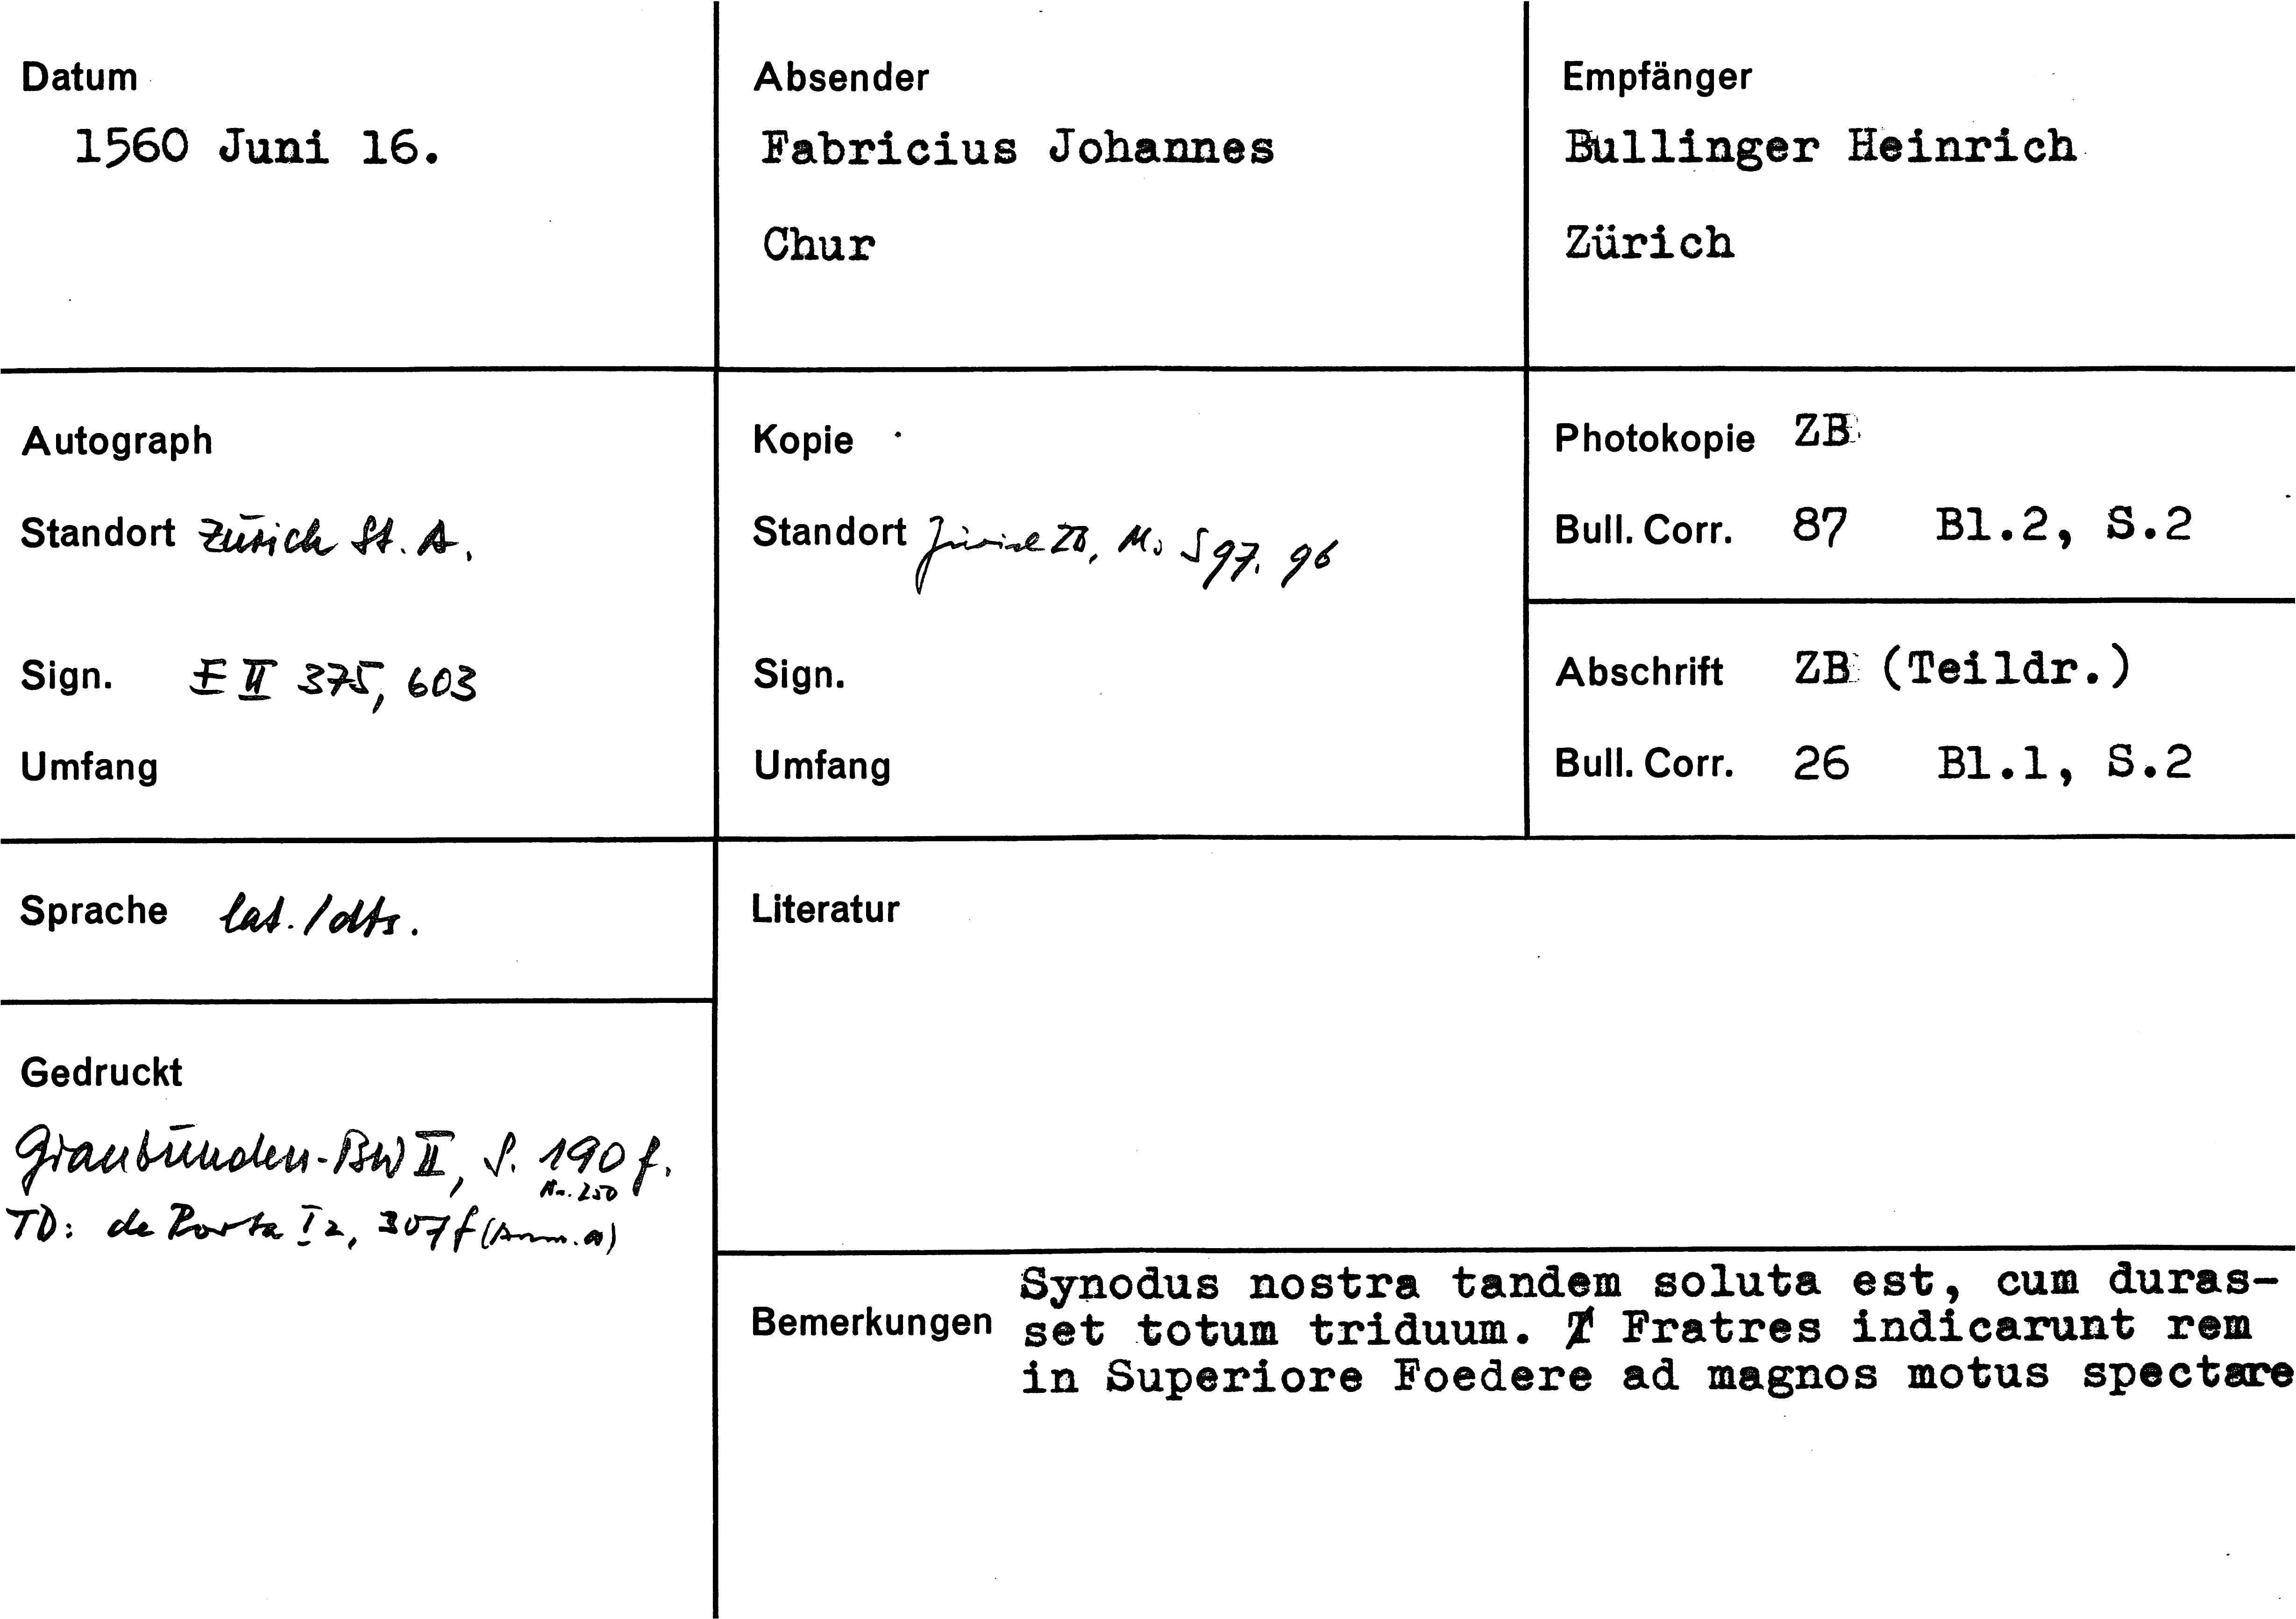 Datum
1560 Juni 16.
Absender
Fabricius Johannes
Chur
Empfänger
Bullinger Heinrich
Zürich
Autograph
Standort Zürich St. A.
Sign. E II 375, 603
Umfang
Kopie
Standort Zürich ZB, Ms S 97, 96
Sign.
Umfang
Photokopie ZB
Bull. Corr. 87 Bl.2, S.2
Abschrift ZB (Teildr.)
Bull. Corr. 26 Bl.1, S.2
Sprache lat./dts.
Literatur
Gedruckt
Graubünden-BW II, S. 190 f.
Nr. 250
TD: de Porta I 2, 307 f (Anm. a)
Bemerkungen
Synodus nostra tandem soluta est, cum duras-
set totum triduum. Fratres indicarunt rem
in Superiore Foedere ad magnos motus spectare